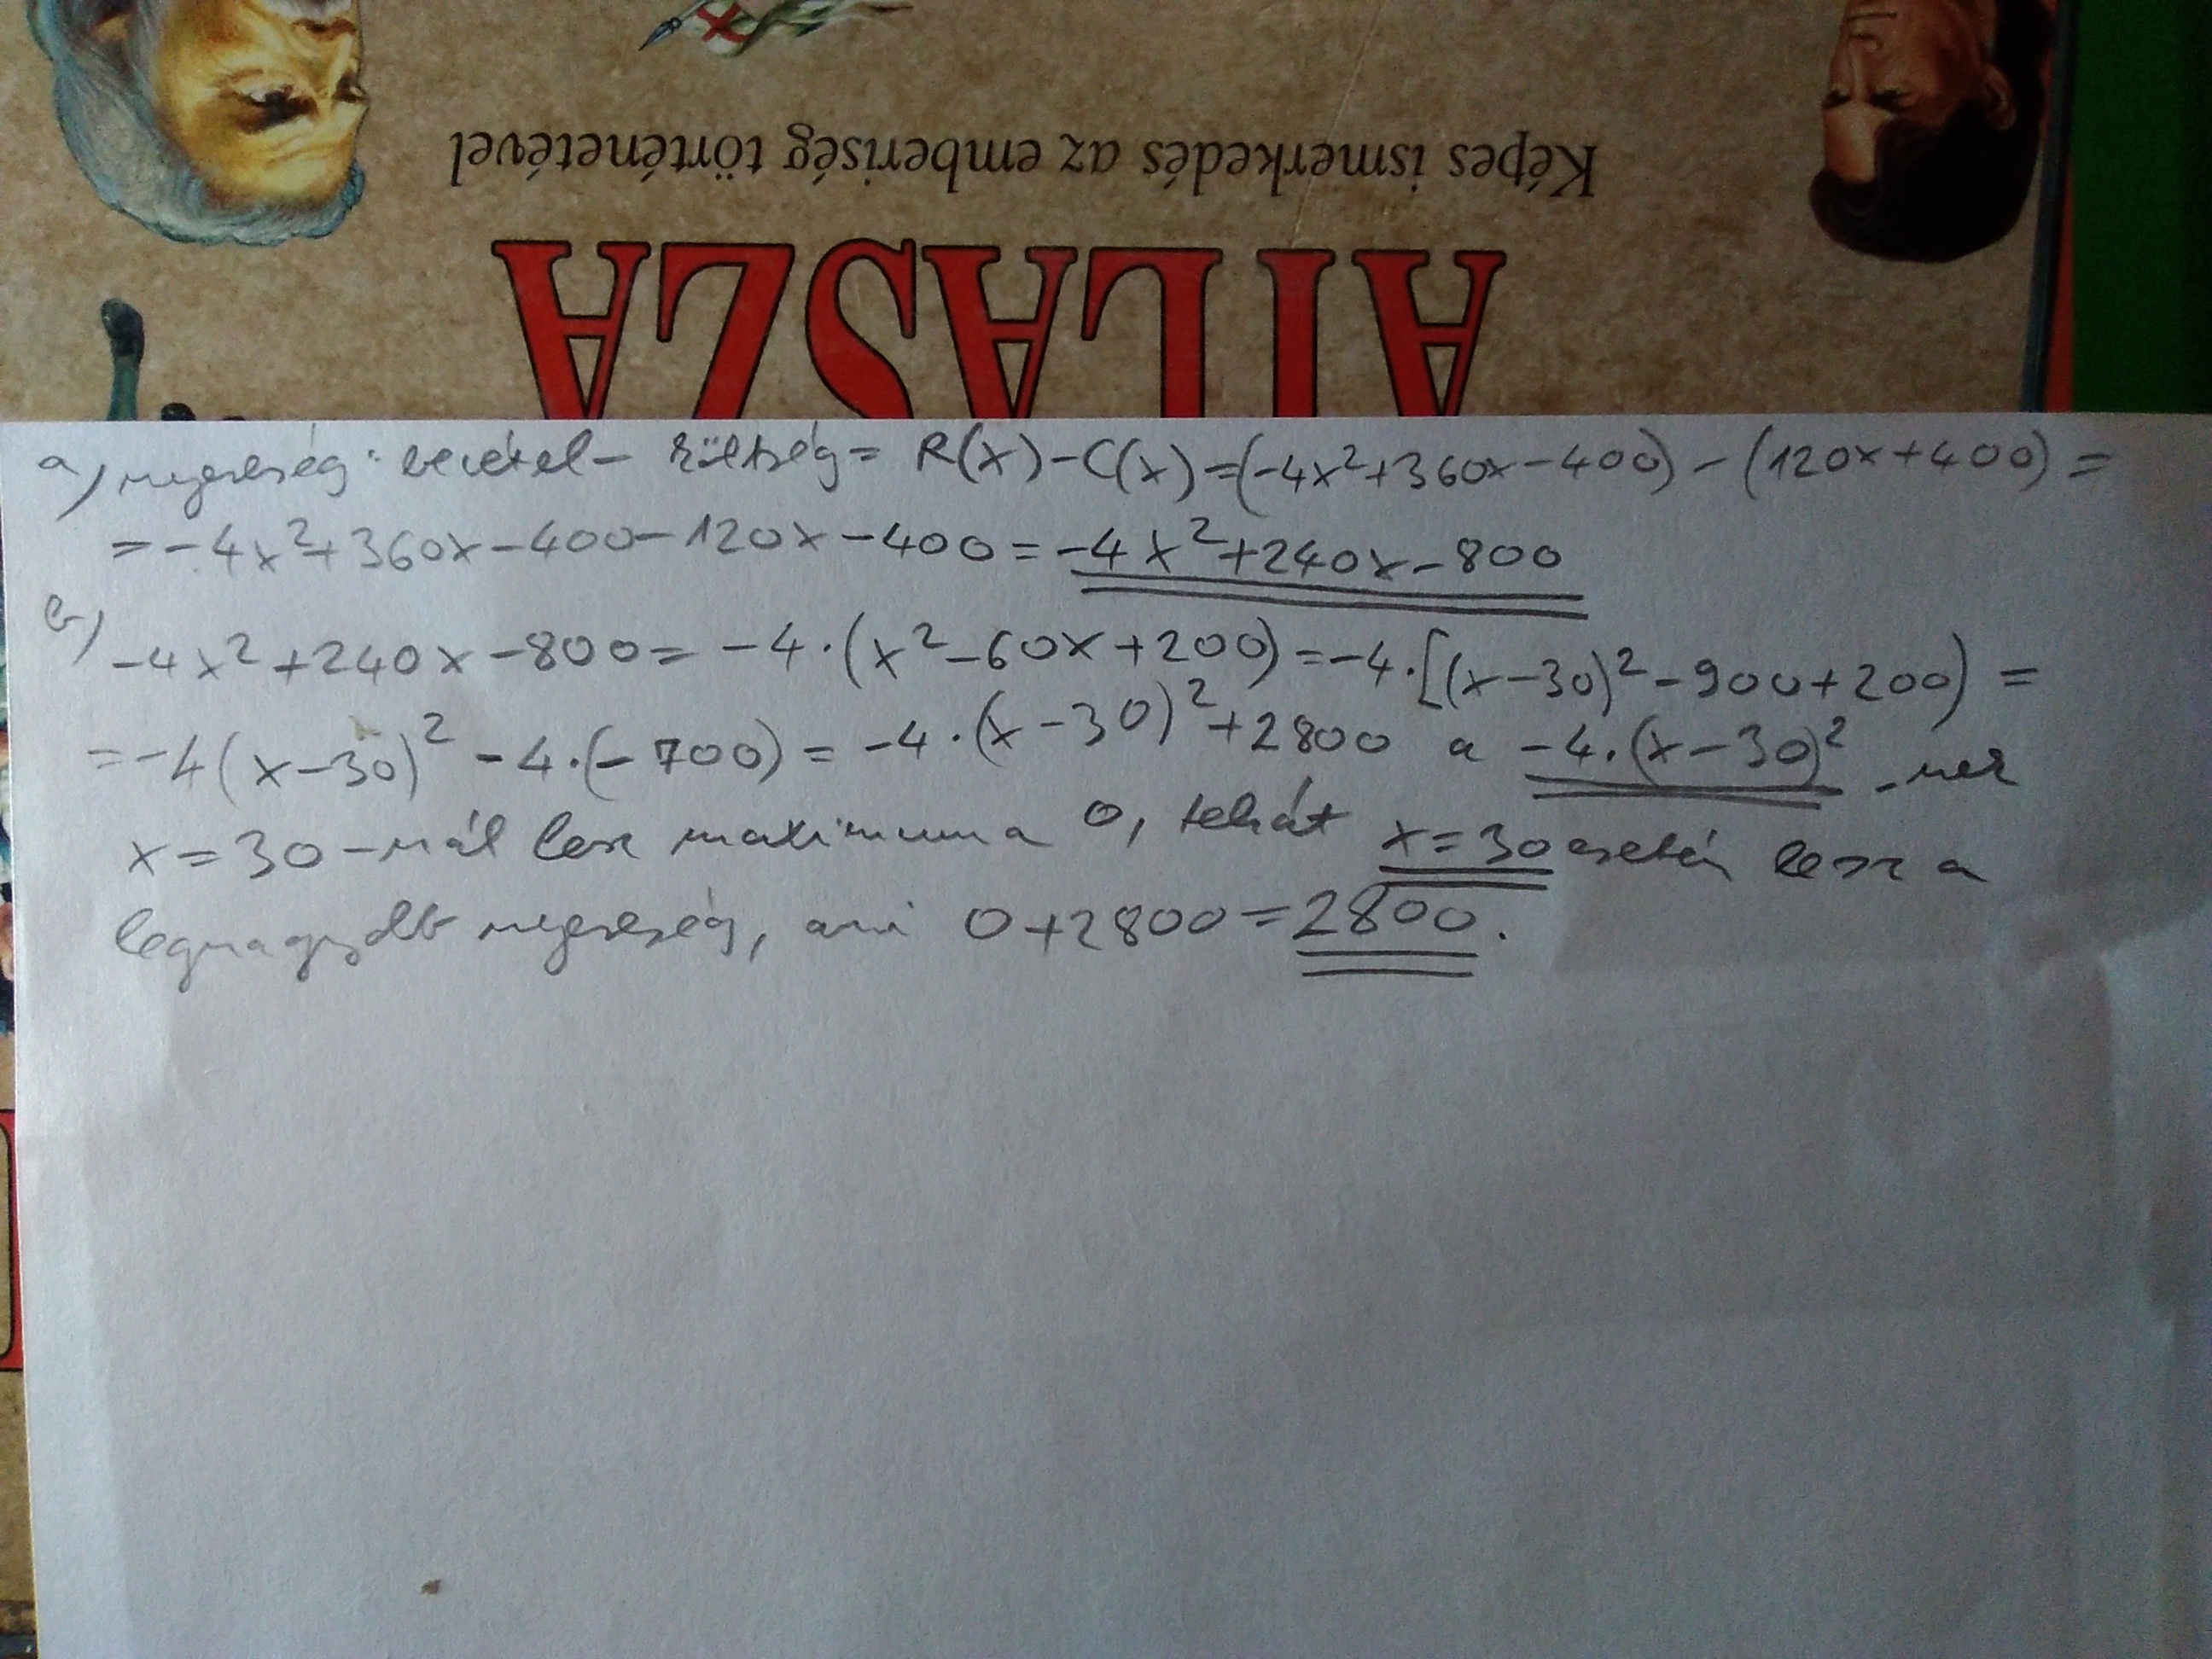 Képes ismerkedés az emberiség történetével
ATLASZA
a) nyereség: bevétel - költség = R(x)-C(x)=(-4x²+360x-400)-(120x+400)=
=-4x²+360x-400-120x-400=-4x²+240x-800
b)
-4x²+240x-800=-4·(x²-60x+200)=-4·[(x-30)²-900+200)=
=-4(x-30)²-4·(-700)=-4·(x-30)²+2800 a -4·(x-30)²-nek
x=30-nál lesz maximuma 0, tehát x=30 esetén lesz a
legnagyobb nyereség, ami 0+2800=2800.